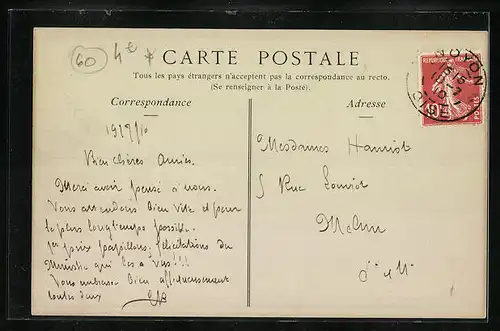 60 4e *
CARTE POSTALE
Tous les pays étrangers n'acceptent pas la correspondance au recto.
(Se renseigner à la Poste).
Correspondance
Adresse
REPUBLIQUE FRANÇAISE
10c
POSTES
NOYON
OISE
Bien chères Amies.
Merci avoir pensé à nous.
Vous attendons bien vite et pour
le plus longtemps possible.
1er prix papillons, félicitations du
Ministre qui les a vus!!!
Vous embrasse bien affectueusement
toutes deux
Mesdames
5 Rue
Melun
S. et M.